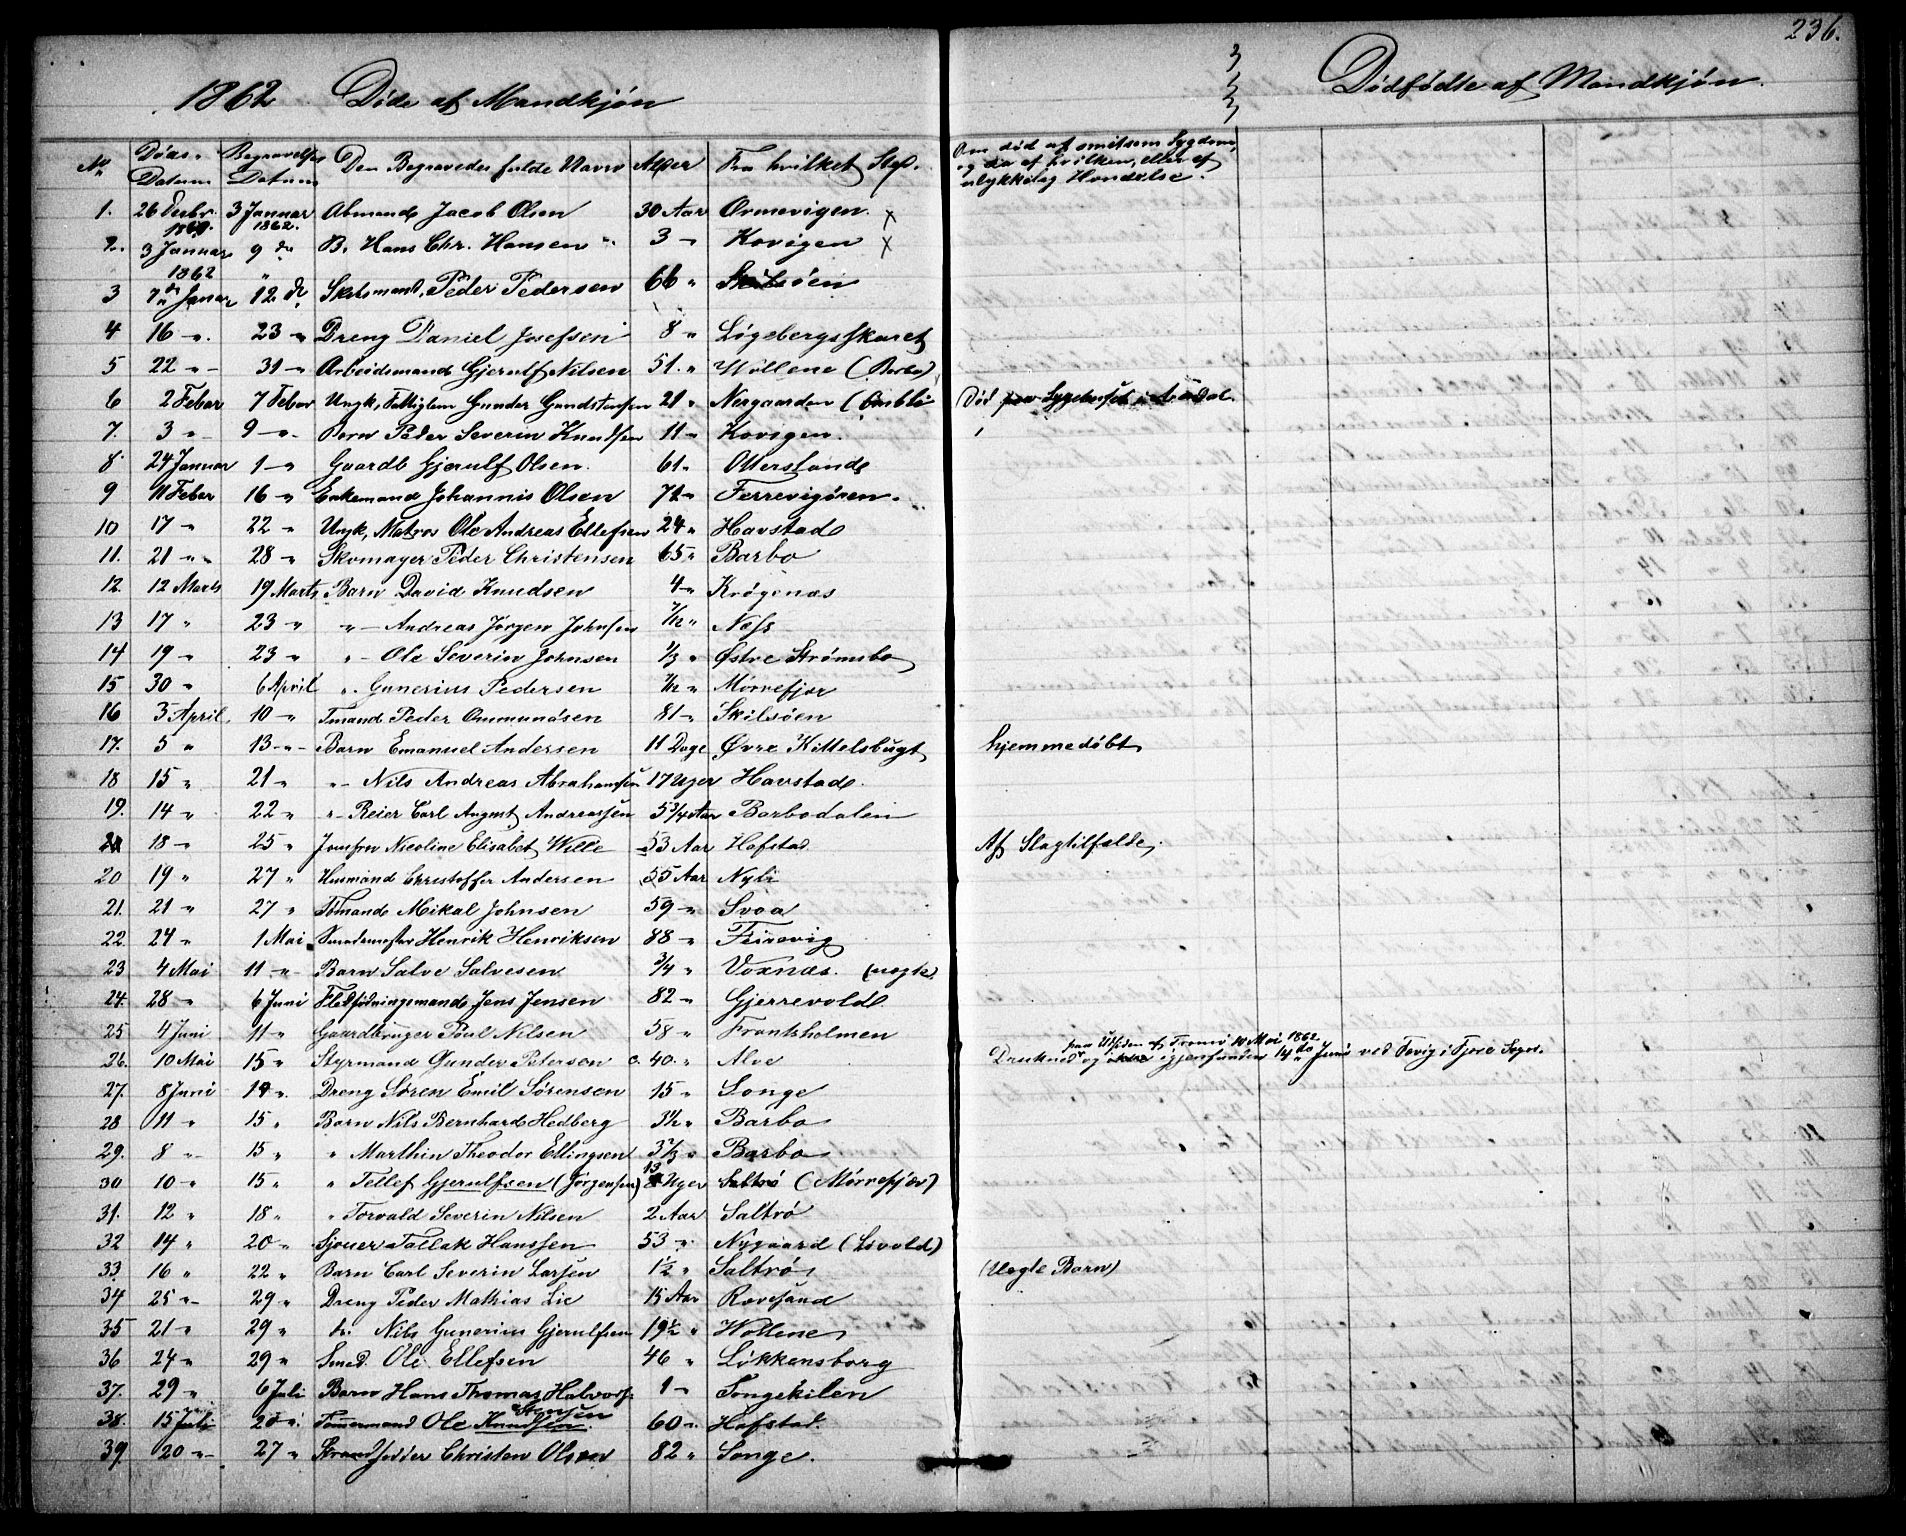 236.
1862 Døde af Mandkjøn
Dødfødte af Mandkjøn.
No Døds- Datum Begravelses Datum Den Begravedes fulde Navn Alder Fra hvilket Sted. Om død af smitsom Sygdom, og da af hvilken, eller af ulykkelig Hændelse.
1. 26 Decbr. 1861. 3 Januar 1862. Jacob Olsen 30 Aar Ormevigen. x
2. 3 Januar 1862 9 do B. Hans Chr. Hansen 3 " Kovigen x
3 7de Januar 12 do Peder Pedersen 66 " Skilsöen
4 16 " 23 " Dreng Daniel Josefsen 8 " Løgebergsskaret
5 22 " 31 " Arbeidsmand Gjerulf Nilsen 51. " Wollene (Barbo)
6 2 Febar 7 Febar Ungk, Fattiglem Gunder Gundstensen 21 " Nergaarden (Ombli Död paa Sygehuset i Arendal.
7. 3 " 9 " Barn Peder Severin Knudsen 11 " Kovigen.
8 24 Januar 1 " Gaardb Gjerulf Olsen. 61 " Otterstand
9 11 Febar 16 " Enkemand Johannis Olsen 72 " Ferrevigören.
10 17 " 22 " Ungk, Matros Ole Andreas Ellefsen 24 " Havstad
11. 21 " 28 " Skomager Peder Christensen 65 " Barbo
12. 12 Marts 19 Marts Barn David Knudsen 4 " Krøgenæs
13 17 " 23 " " Andreas Jørgen Johnsen 7/12 " Næss
14 19 " 23 " " Ole Severin Johnsen 1/3 " Østre Strømsbo
15 30 " 6 April " Gunerius Pedersen 7/12 " Mørrefjær
16 3 April 10 " Tmand Peder Ommundsen 81 " Skilsöen
17. 5 " 13 " Barn Emanuel Andersen 11 Dage Øvre Kittelsbugt hjemmedøbt
18 15 " 21 " " Nils Andreas Abrahamsen 17 Uger Havstad.
19. 14 " 22 " " Reier Carl August Andreassen 5 3/4 Aar Barbodalen
18 " 25 " Jomfru Nicoline Elisabet Wille 53 Aar Hafstad Af Slagtilfælde.
20 19 " 27 " Husmand Christoffer Andersen 55 Aar Nyli
21. 21 " 27 " Tömand Mikal Johnsen 59 " Svoa
22. 24 " 1 Mai Henrik Henriksen 88 " Feirevig
23 4 Mai 11 " Barn Salve Salvesen 3/4 " Voxnæs. (uægte)
24. 28 " 6 Juni Flødføringsmand Jens Jensen 82 " Gjerrevold
25 4 Juni 11 " Gaardbruger Poul Nilsen 58 " Frantsholmen
26. 10 Mai 15 " Styrmand Gunder Petersen c. 40. " Alve Druknede paa Utsiden af Tromö 10 Mai 1862 og igjenfunden 14de Juni ved Fevig i Fjære Sogn.
27. 8 Juni 14 ". Dreng Sören Emil Sörensen 15 " Songe
28 11 " 15 " Barn Nils Bernhard Hedberg 3 1/2 " Barbo
29. 8 " 15 " " Marthin Theodor Ellingsen 3 2/3 " Barbo
30 10 " 15 " " Tellef Gjerulfsen (Jørgensen) 13 Uger Saltrö (Mørrefjær)
31. 12 " 18 " " Torvald Severin Nilsen 2 Aar Saltrö
32 14 " 20 " Sjouer Tallak Hanssen 53 " Nygaard (Lövold)
33. 16 " 22 " Barn Carl Severin Larsen 1 1/2 " Saltrö (Uægte Barn)
34 25 " 29 " Dreng Peder Mathias Lie 15 Aar Rævesand
35 21 " 29 " do. Nils Gunerius Gjerulfsen 19 1/2 " Wollene
36 24 " 29 " Smed. Ole Ellefsen 46 " Løkkensborg
37. 29 " 6 Juli Barn Hans Thomas Halvors. 1 " Songekilen
38. 15 Juli 20 " Tömmermand Ole Knudsen 60 " Hafstad.
39. 20 " 27 " Christen Olsen 82 " Songe.